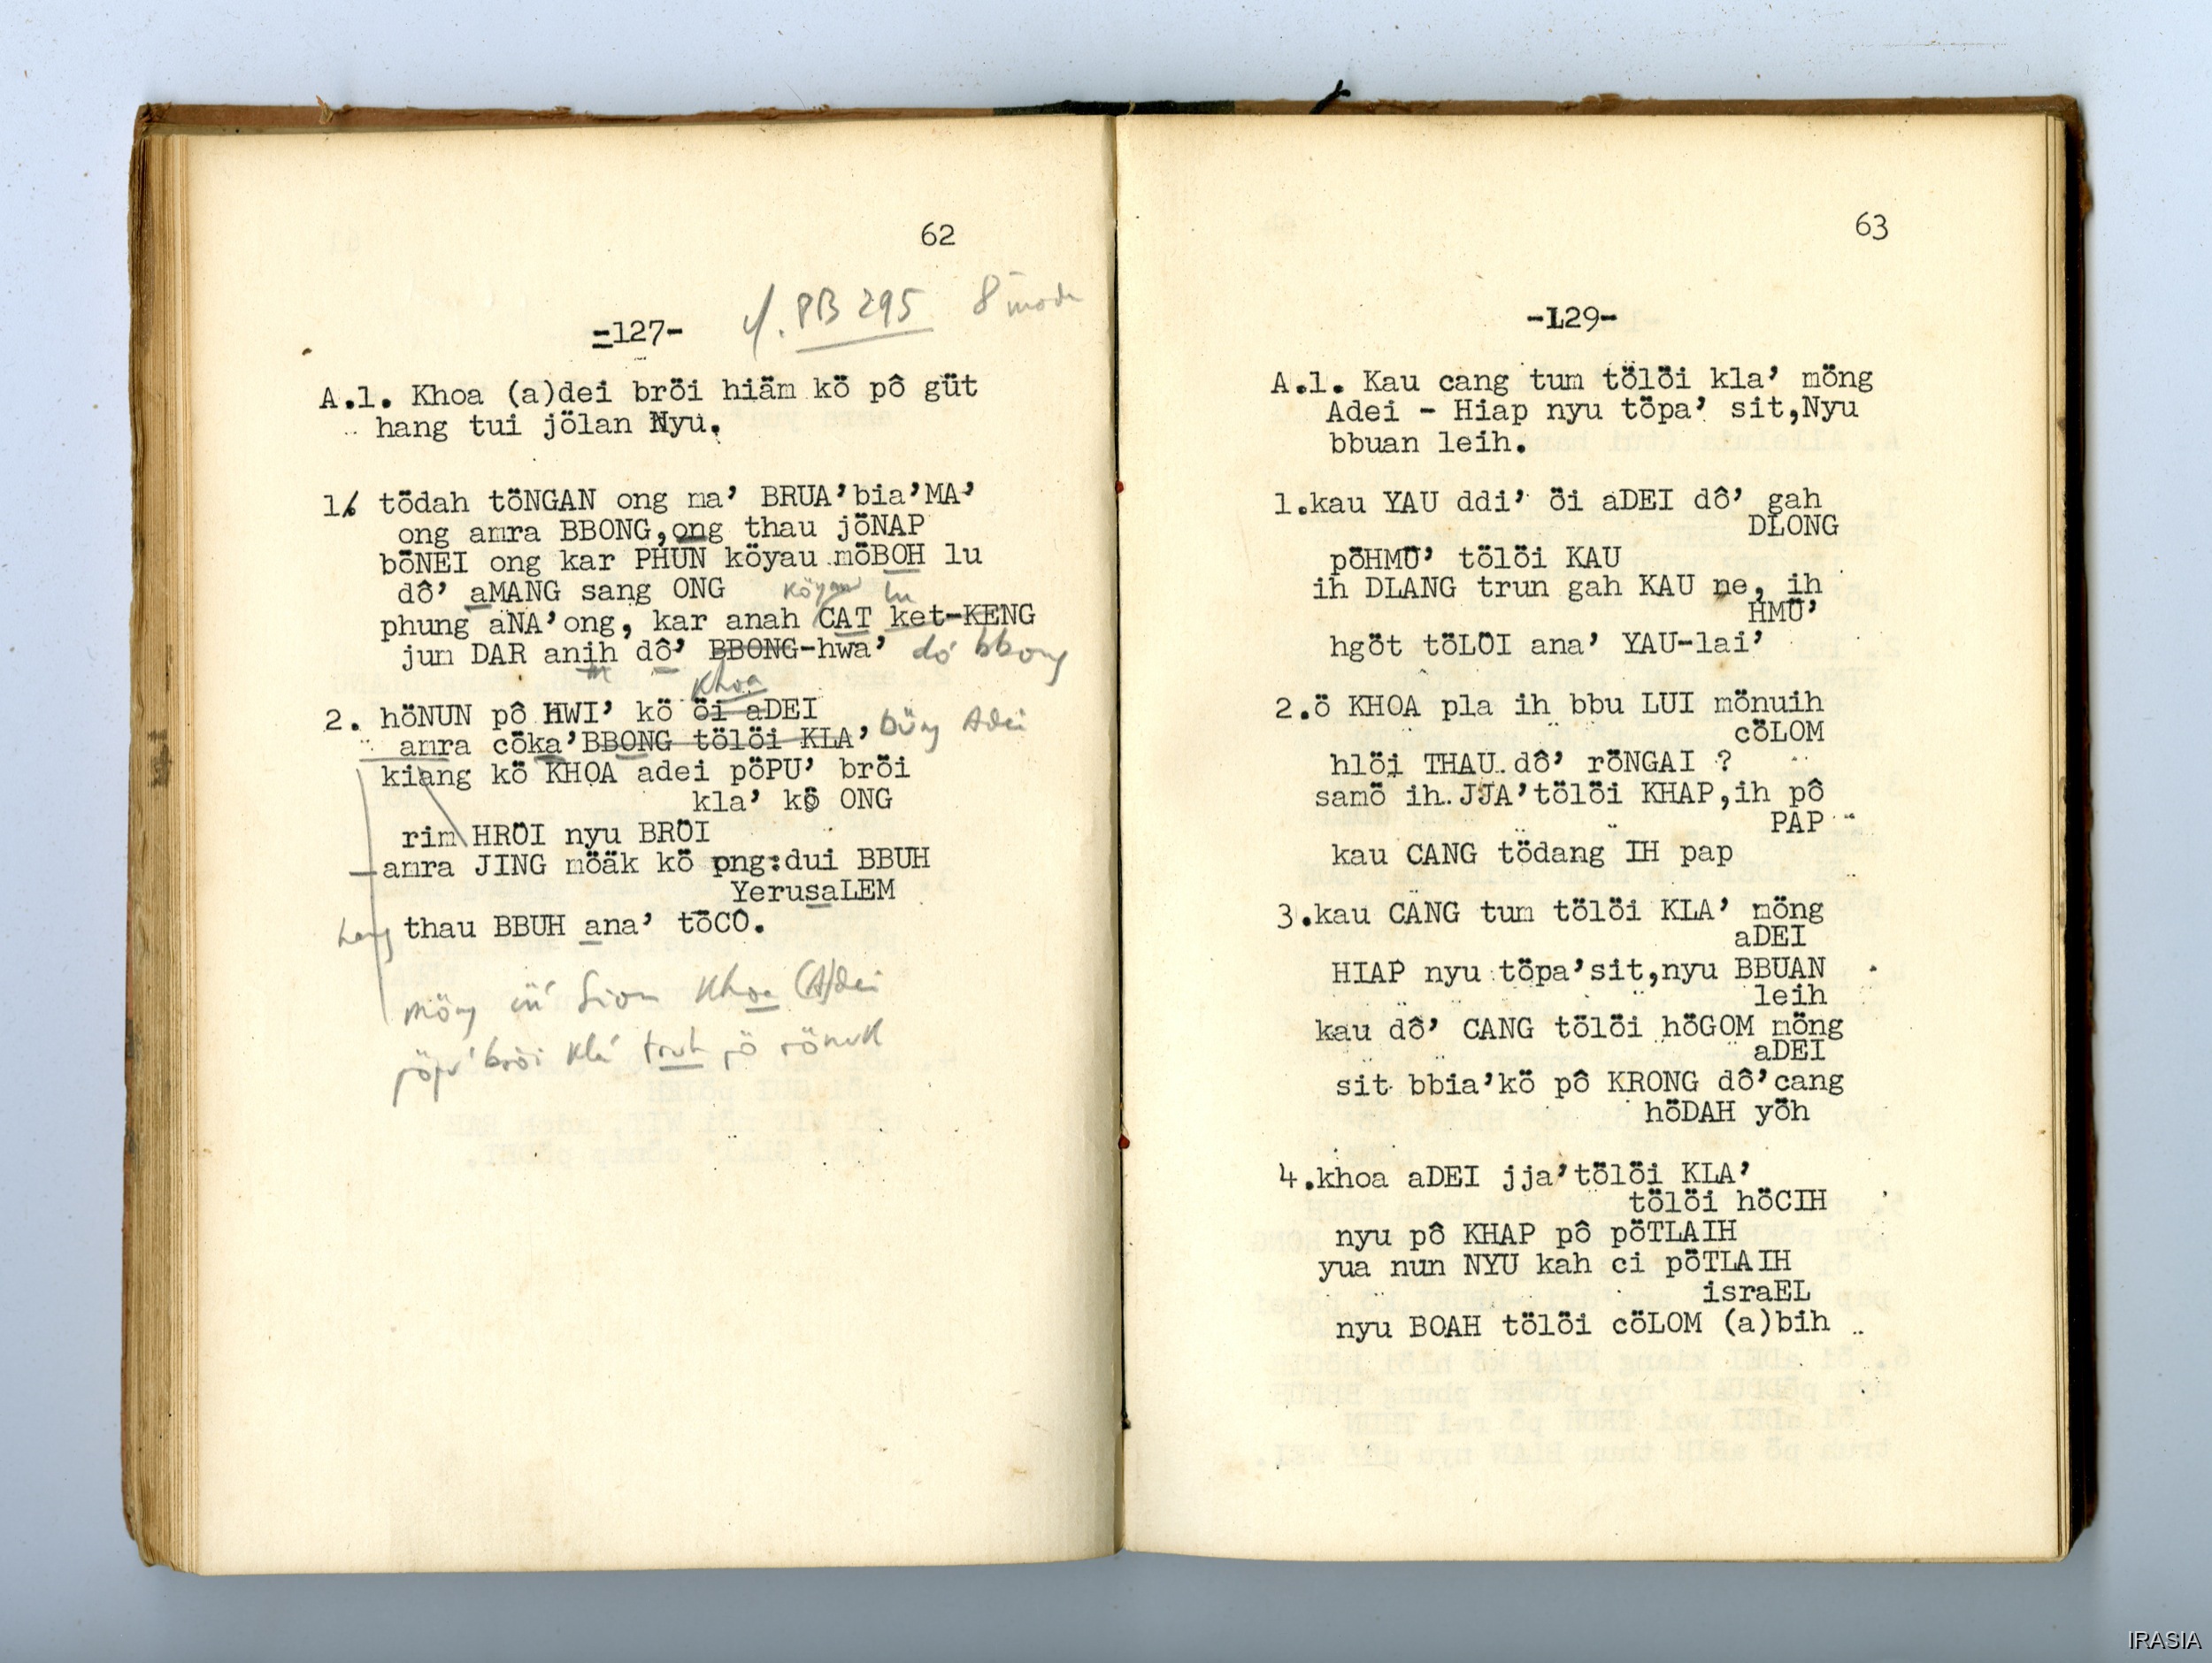 62
-127-
PB 295 8 mode
A.1. Khoa (a)dei bröi hiäm kö pô güt
hang tui jölan Nyu.
1. tödah töNGAN ong ma’ BRUA’bia’MA’
ong amra BBONG,ong thau jöNAP
böNEI ong kar PHUN köyau möBOH lu
dô’ aMANG sang ONG
köyau lu
phung aNA’ong, kar anah CAT ket-KENG
jum DAR anih dô’ BBONG-hwa’ dô' bbong
Khoa
2. höNUN pô HWI’ kö öi aDEI
amra cöka’BBONG tölöi KLA’, Böng Adei
kiang kö KHOA adei pöPU’ bröi
kla’ kö ONG
rim HRÖI nyu BRÖI
amra JING möäk kö ong:dui BBUH
YerusaLEM
hang thau BBUH ana’ töCÔ.
möng Sion Khoa (A)dei
pöpu' bröi kla' truh pö rönuk
63
-129-
A.1. Kau cang tum tölöi kla’ möng
Adei - Hiap nyu töpa’ sit,Nyu
bbuan leih.
1.kau YAU ddi’ öi aDEI dô’ gah
DLONG
pöHMÜ’ tölöi KAU
ih DLANG trun gah KAU ne, ih
HMÜ’
hgöt töLÖI ana’ YAU-lai’
2.ö KHOA pla ih bbu LUI mönuih
cöLOM
hlöi THAU dô’ röNGAI ?
samö ih JJA’tölöi KHAP,ih pô
PAP
kau CANG tödang IH pap
3.kau CANG tum tölöi KLA’ möng
aDEI
HIAP nyu töpa’sit,nyu BBUAN
leih
kau dô’ CANG tölöi höGOM möng
aDEI
sit bbia’kö pô KRONG dô’cang
höDAH yöh
4.khoa aDEI jja’tölöi KLA’
tölöi höCIH
nyu pô KHAP pô pöTLAIH
yua nun NYU kah ci pöTLAIH
israEL
nyu BOAH tölöi cöLOM (a)bih
IRASIA